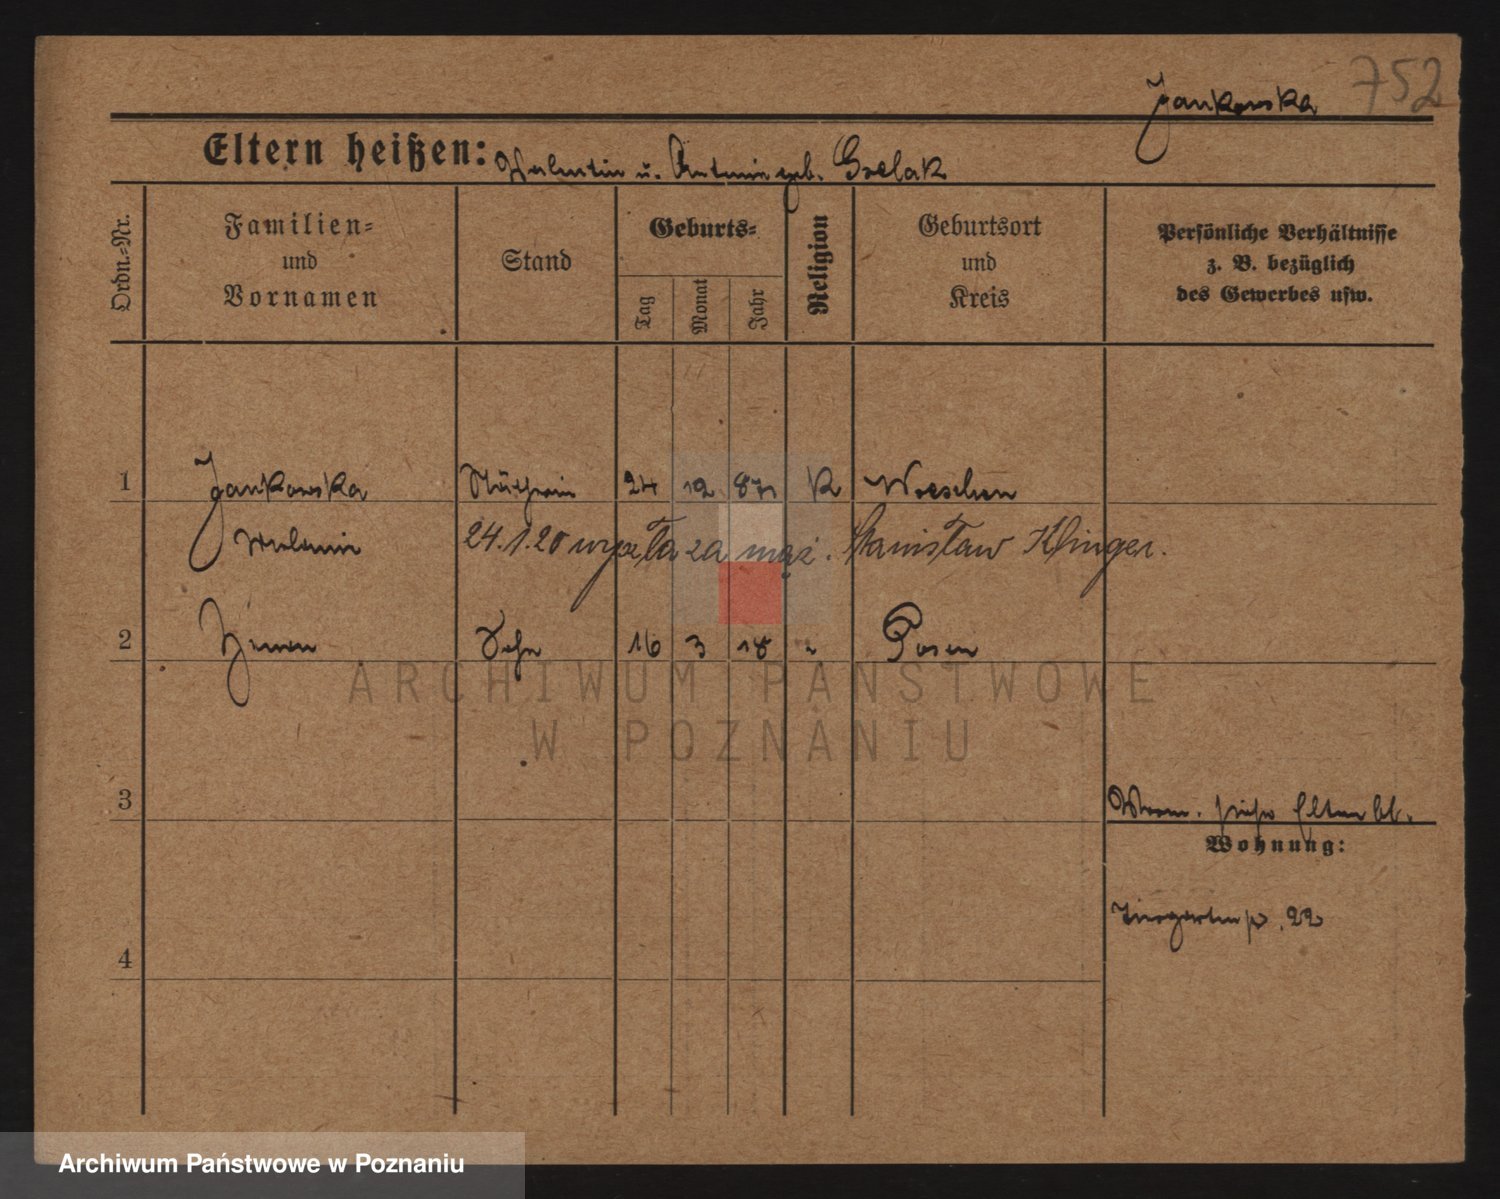 Jankowska 752
Eltern heißen: Valentin u. Antonie geb. Goclak
Ordn.-Nr.
Familien-
und
Vornamen
Stand
Geburts-
Tag
Monat
Jahr
Religion
Geburtsort
und
Kreis
Persönliche Verhältnisse
z. B. bezüglich
des Gewerbes usw.
1 Jankowska Näherin 24 12 87 K Wreschen
Melanie 24.1.20 wyszła za mąż. Stanisław Klinger.
2 Zenon Sohn 16 3 18 " Posen
ARCHIWUM PAŃSTWOWE
W POZNANIU
3
siehe Eltern bl.
Wohnung:
Tiergartenstr. 22
4
Archiwum Państwowe w Poznaniu